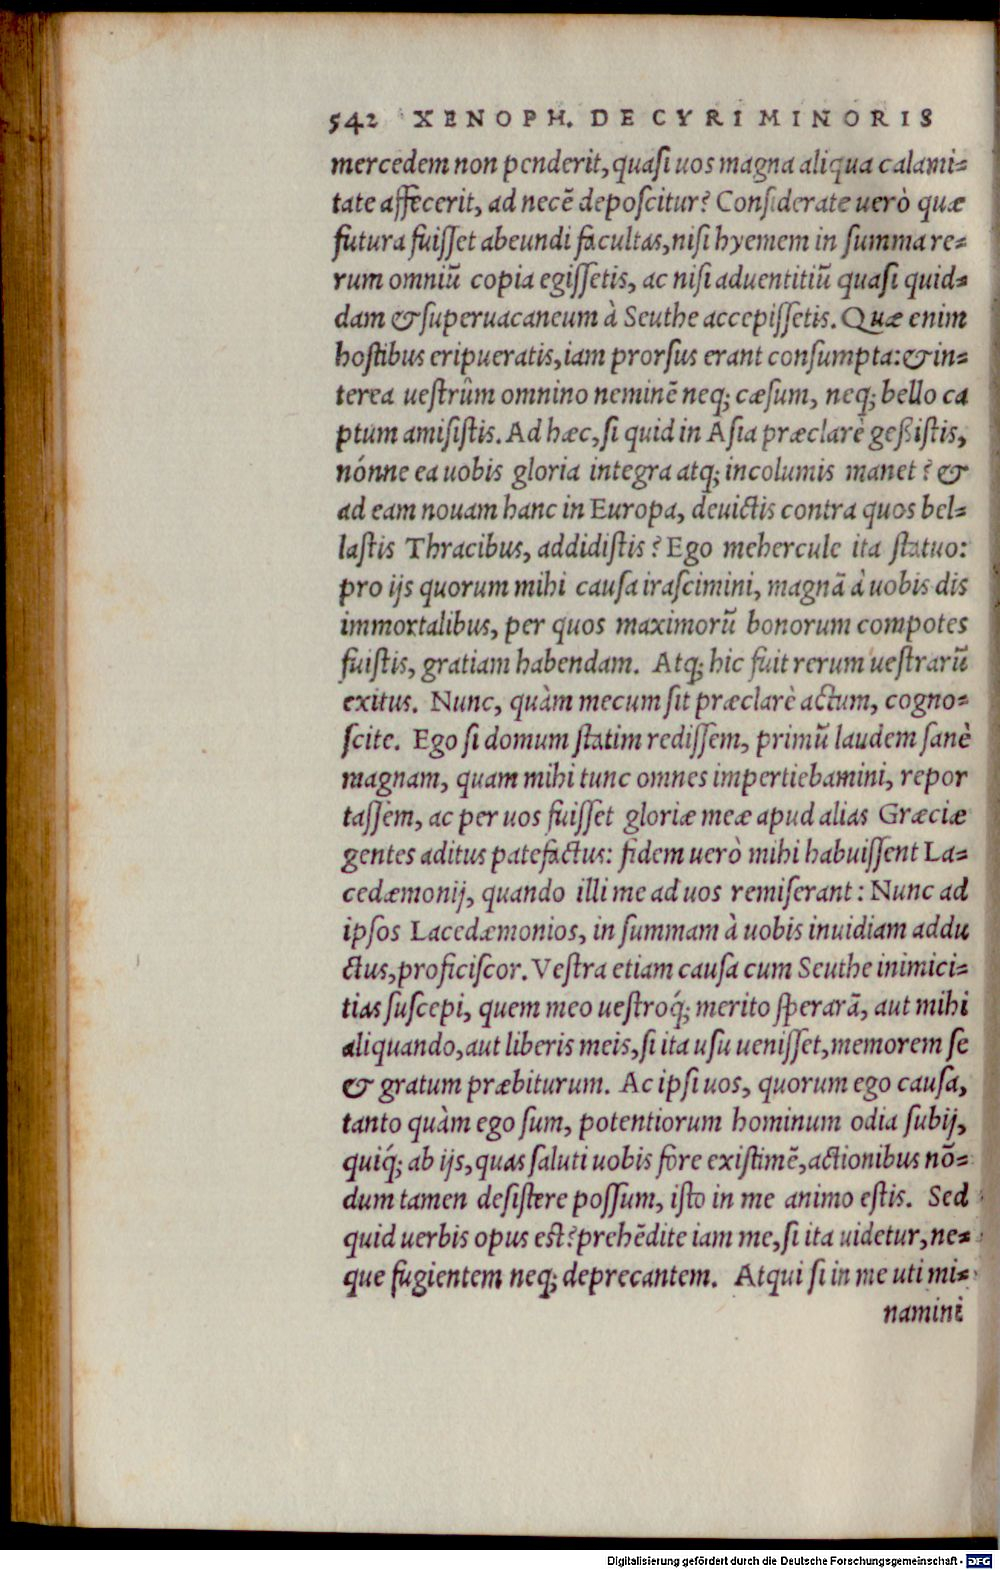 542 XENOPH. DE CYRI MINORIS
mercedem non penderit, quasi uos magna aliqua calami-
tate affecerit, ad necē deposcitur? Considerate uerò quæ
futura fuisset abeundi facultas, nisi hyemem in summa re-
rum omniū copia egissetis, ac nisi aduentitiū quasi quid-
dam & superuacaneum à Seuthe accepissetis. Quæ enim
hostibus eripueratis, iam prorsus erant consumpta: & in-
terea uestrûm omnino neminē neq; cæsum, neq; bello ca
ptum amisistis. Ad hæc, si quid in Asia præclarè geßistis,
nónne ea uobis gloria integra atq; incolumis manet? &
ad eam nouam hanc in Europa, deuictis contra quos bel-
lastis Thracibus, addidistis? Ego mehercule ita statuo:
pro ijs quorum mihi causa irascimini, magnā à uobis dis
immortalibus, per quos maximorū bonorum compotes
fuistis, gratiam habendam. Atq; hic fuit rerum uestrarū
exitus. Nunc, quàm mecum sit præclarè actum, cogno-
scite. Ego si domum statim redissem, primū laudem sanè
magnam, quam mihi tunc omnes impertiebamini, repor
tassem, ac per uos fuisset gloriæ meæ apud alias Græciæ
gentes aditus patefactus: fidem uerò mihi habuissent La-
cedæmonij, quando illi me ad uos remiserant: Nunc ad
ipsos Lacedæmonios, in summam à uobis inuidiam addu
ctus, proficiscor. Vestra etiam causa cum Seuthe inimici-
tias suscepi, quem meo uestroq́; merito sperarā, aut mihi
aliquando, aut liberis meis, si ita usu uenisset, memorem se
& gratum præbiturum. Ac ipsi uos, quorum ego causa,
tanto quàm ego sum, potentiorum hominum odia subij,
quiq́; ab ijs, quas saluti uobis fore existimē, actionibus nō-
dum tamen desistere possum, isto in me animo estis. Sed
quid uerbis opus est? prehēdite iam me, si ita uidetur, ne-
que fugientem neq; deprecantem. Atqui si in me uti mi-
namini
Digitalisierung gefördert durch die Deutsche Forschungsgemeinschaft - DFG